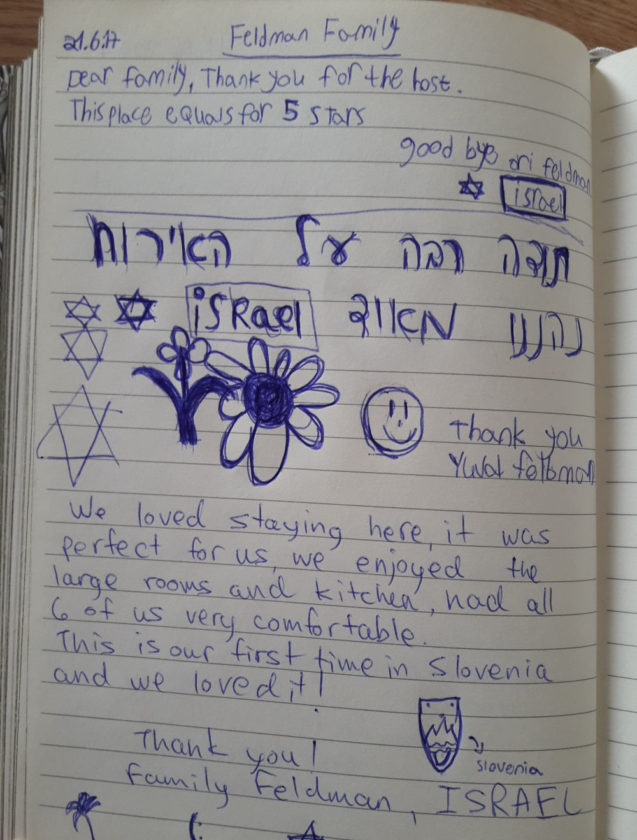 21.6.17
Feldman Family
Dear family, Thank you for the host.
This place equals for 5 stars
good bye ori feldman
israel
תודה רבה על האירוח
נהננו מאוד israel
Thank you
Yuval feldman
We loved staying here, it was
perfect for us, we enjoyed the
large rooms and kitchen, had all
6 of us very comfortable.
This is our first time in Slovenia
and we loved it!
Slovenia
Thank you!
Family Feldman, ISRAEL